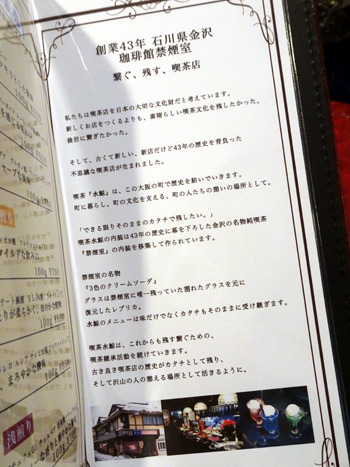 創業43年 石川県金沢
珈琲館禁煙室
繋ぐ、残す、喫茶店
私たちは喫茶店を日本の大切な文化財だと考えています。
新しくお店をつくるよりも、素晴らしい喫茶文化を残したかった。
後世に繋ぎたかった。
そして、古くて新しい、新店だけど43年の歴史を背負った
不思議な喫茶店が生まれました。
喫茶『水鯨』は、この大阪の町で歴史を紡いでいきます。
町に暮らし、町の文化を支える、町の人たちの憩いの場所として。
「できる限りそのままのカタチで残したい。」
喫茶水鯨の内装は43年の歴史に幕を下ろした金沢の名物純喫茶
『禁煙室』の内装を移築して作られています。
禁煙室の名物
『3色のクリームソーダ』
グラスは禁煙室に唯一残っていた割れたグラスを元に
復元したレプリカ。
水鯨のメニューは味だけでなくカタチもそのままに受け継ぎます。
喫茶水鯨は、これからも残す繋ぐための、
喫茶継承活動を続けていきます。
古き良き喫茶店の歴史がカタチとして残り、
そして沢山の人の憩える場所として活きるように。
100g ¥700
浅煎り